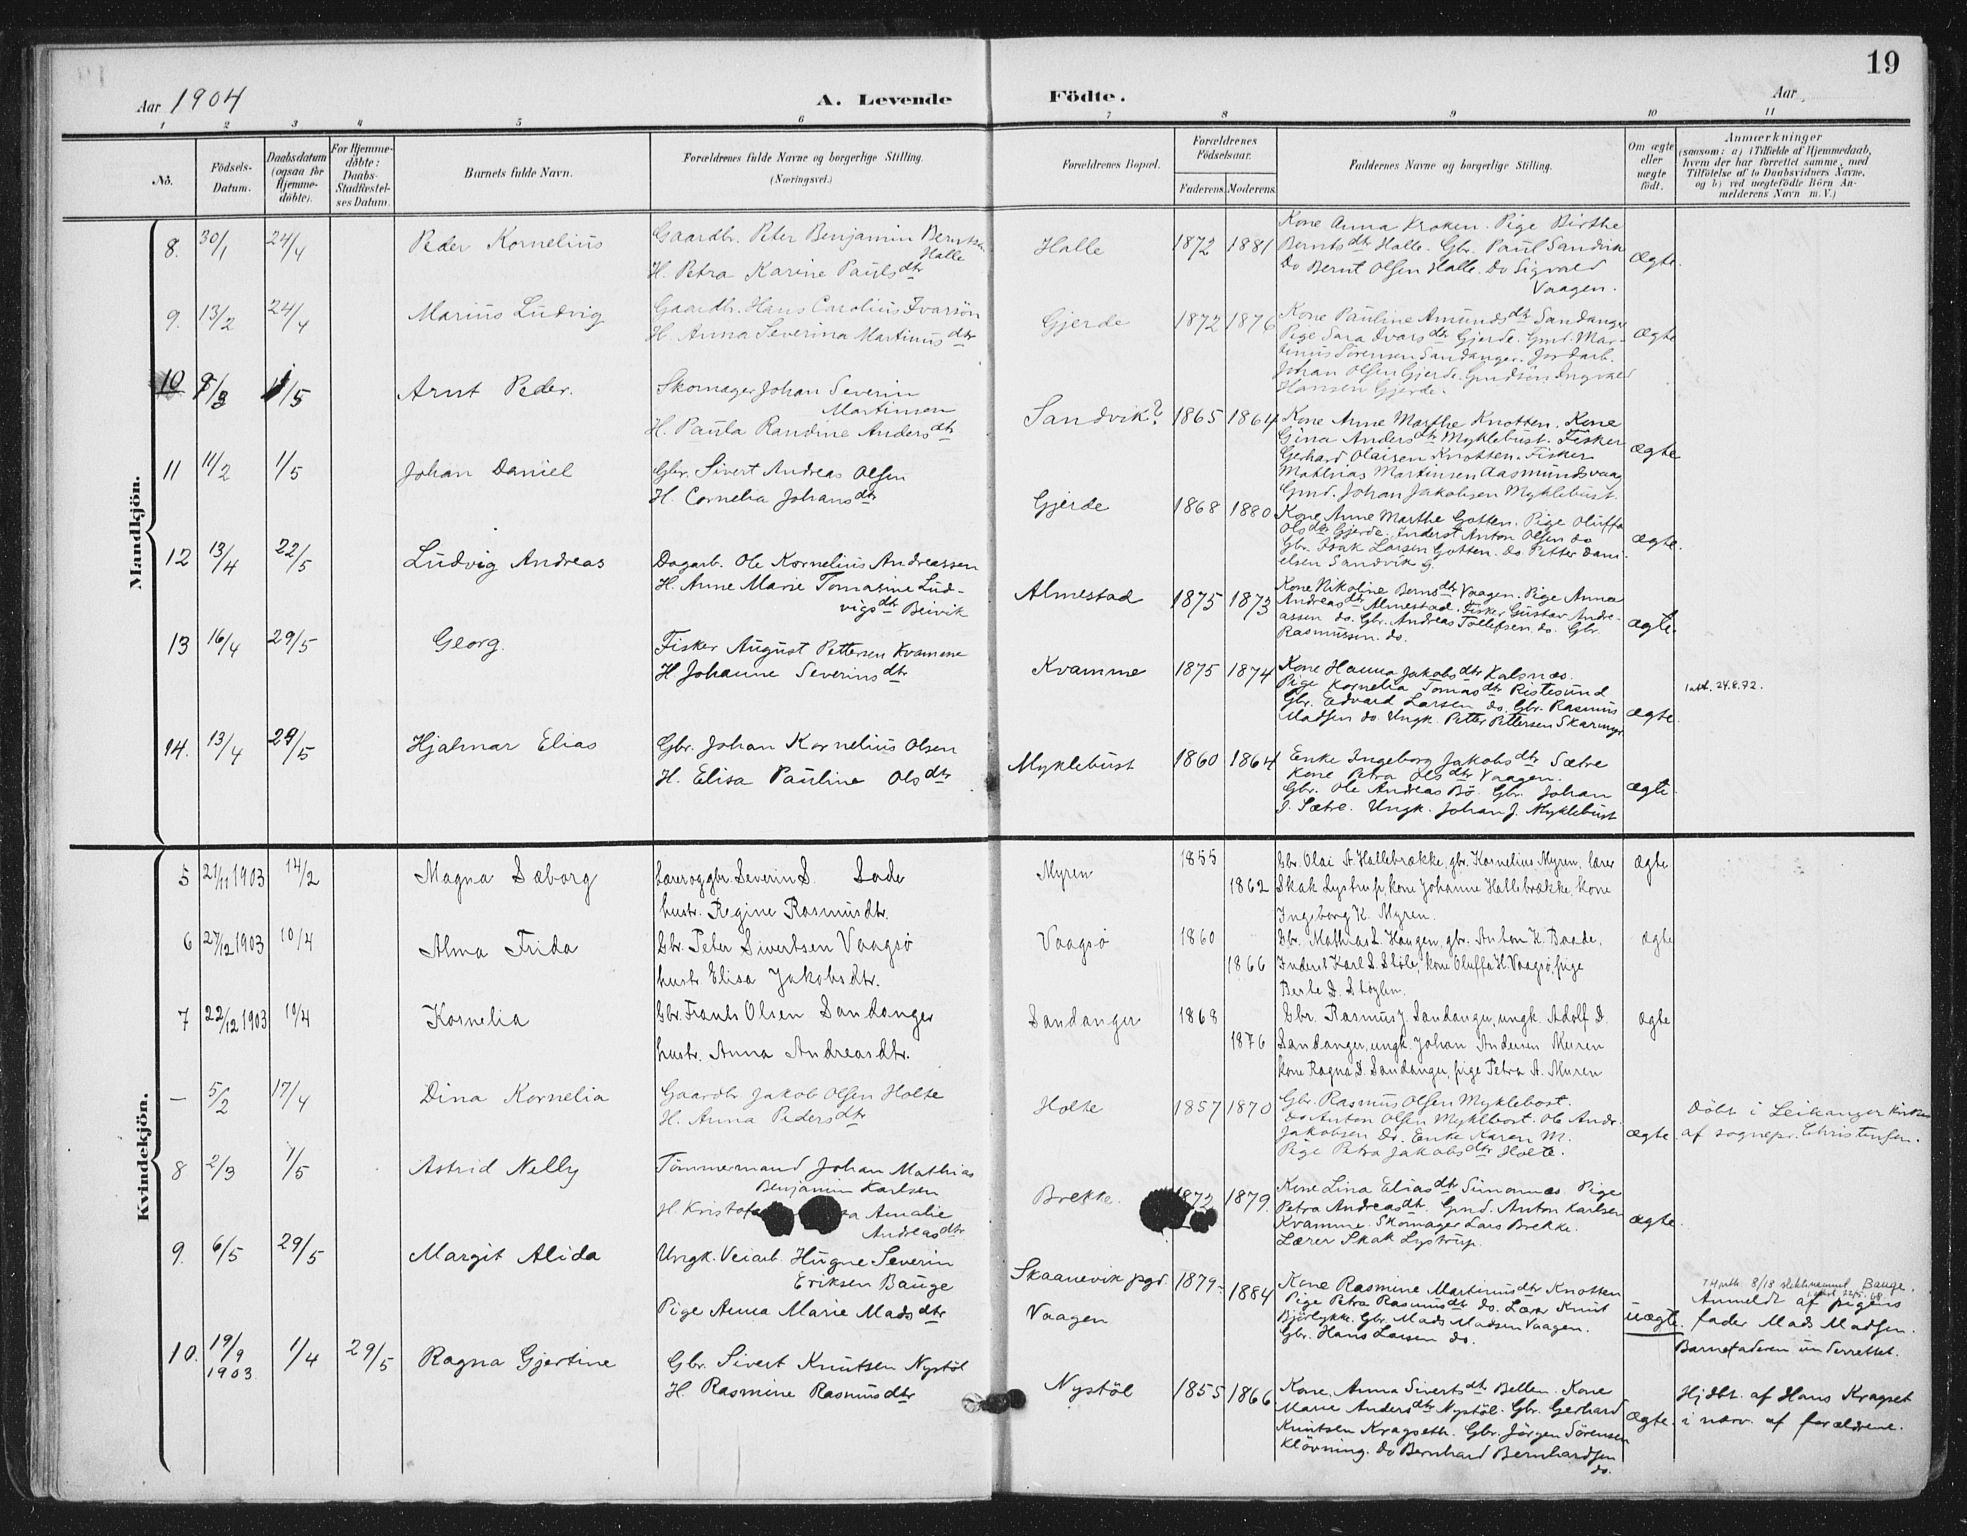 19
Aar 1904
A. Levende Födte.
Aar
1 2 3 4 5 6 7 8 9 10 11
No.
Födsels-Datum.
Daabsdatum (ogsaa for Hjemme-döbte).
For Hjemme-döbte: Daabs-Stadfæstel-ses Datum.
Barnets fulde Navn.
Forældrenes fulde Navne og borgerlige Stilling. (Næringsvei.)
Forældrenes Bopæl.
Forældrenes Födselsaar.
Faderens. Moderens.
Faddernes Navne og borgerlige Stilling.
Om ægte eller uægte födt.
Anmærkninger
(saasom: a) i Tilfælde af Hjemmedaab, hvem der har forrettet samme, med Tilföielse af to Daabsvidners Navne, og b) ved uægtefödte Börn Anmelderens Navn m. V.)
Mandkjön.
8. 30/1 24/4 Peder Kornelius
Gaardbr. Peter Benjamin Berntsen
Halle
H. Petra Karine Paulsdtr
Halle 1872 1881
Kone Anna Kroken. Pige Birthe
Berntsdtr Halle. Gbr. Paul Sandvik
Do Bernt Olsen Halle. Do Sigvald
Vaagen.
ægte.
9. 13/2 24/4 Marius Ludvig
Gaardbr. Hans Carolius Ivarsön
H. Anna Severina Martinusdtr
Gjerde 1872 1876
Kone Pauline Amundsdtr Sandanger
Pige Sara Ivarsdtr Gjerde. Gmd. Mar-
tinus Sörensen Sandanger. Jordarb.
Johan Olsen Gjerde. Gmdsön Ingvald
Hansen Gjerde.
ægte
10 8/3 1/5 Arnt Peder.
Skomager Johan Severin
Martinsen
H. Paula Randine Andersdtr
Sandvik? 1865 1864
Kone Anne Marthe Knotten. Kone
Gina Andersdtr Myklebust. Fisker
Gerhard Olaisen Knotten. Fisker
Mathias Martinsen Aasmundsvaag
Gmd. Johan Jakobsen Myklebust.
ægte
11 11/2 1/5 Johan Daniel
Gbr. Sivert Andreas Olsen
H. Cornelia Johansdtr
Gjerde 1868 1880
Kone Anne Marthe Gotten. Pige Oluffa
Olsdtr Gjerde. Inderst Anton Olsen do
Gbr. Isak Larsen Gotten. do Petter Dani-
elsen Sandvik g.
ægte.
12 13/4 22/5 Ludvig Andreas
Dagarb. Ole Kornelius Andreassen
H. Anne Marie Tomasine Lud-
vigsdtr Beivik
Almestad 1875 1873
Kone Nikoline Berns dtr Vaagen. Pige Anna
Andreasdtr Almestad. Fisker Gustav Andre-
assen do. Gbr. Andreas Tollefsen do. Gbr.
Rasmussen. do.
ægte.
13 16/4 29/5 Georg.
Fisker August Pettersen Kvamme
H. Johanne Severinsdtr
Kvamme 1875 1874
Kone Hanna Jakobsdtr Kalsnæs.
Pige Kornelia Tomasdtr Ristesund
Gbr. Edvard Larsen do. Gbr. Rasmus
Madsen do. Ungk. Petter Pettersen
ægte.
24.8.72.
14. 13/4 29/5 Hjalmar Elias
Gbr. Johan Kornelius Olsen
H. Elisa Pauline Olsdtr
Myklebust 1860 1864
Enke Ingeborg Jakobsdtr Sætre
Kone Petra Olsdtr Vaagen.
Gbr. Ole Andreas Bö. Gbr. Johan
J. Sætre. Ungk. Johan J. Myklebust
ægte.
Kvindekjön.
5 21/11 1903 14/2 Magna Sæborg
Lærer og gbr. Severin S. Sade
hustr. Regine Rasmusdtr.
Myren 1855 1862
Gbr. Olai A. Hallebrække, gbr. Kornelius Myren, lærer
Skak Lystrup, kone Johanne Hallebrække, kone
Ingeborg K. Myren.
ægte
6 27/12 1903 10/4 Alma Frida
Gbr. Peter Sivertsen Vaagsö
hustr. Elisa Jakobsdtr.
Vaagsö 1860 1866
Gbr. Mathias L. Haugen, gbr. Anton K. Baade,
Inderst Karl S. Stöle, kone Oluffa H. Vaagsö, pige
Berte D.
ægte
7 22/12 1903 10/4 Kornelia
Gbr. Frants Olsen Sandanger
hustr. Anna Andreasdtr.
Sandanger 1868 1876
Gbr. Rasmus J. Sandanger, ungk. Adolf S.
Sandanger, ungk. Johan Andersen Muren
kone Ragna S. Sandanger, pige Petra A. Muren
ægte
— 5/2 17/4 Dina Kornelia
Gaardbr. Jakob Olsen Holte
H. Anna Pedersdtr
Holte 1857 1870
Gbr. Rasmus Olsen Myklebost.
Do Anton Olsen Myklebost. Ole Andr.
Jakobsen Do. Enke Karen M.
Pige Petra Jakobsdtr Holte.
ægte.
Döbt i Leikanger kirke
af sognepr. Christensen.
8 2/3 1/5 Astrid Nelly
Tömmermand Johan Mathias
Benjamin Karlsen
H. Amalie
Andreasdtr
Brekke. 1872 1879.
Kone Lina Eliasdtr Simonnæs. Pige
Petra Andreasdtr. Gmd. Anton Karlsen
Kvamme. Skomager Lars Brekke.
Lærer Skak Lystrup.
ægte.
9. 6/5 29/5 Margit Alida
Ungk. Veiarb. Hugne Severin
Eriksen Bauge
Pige Anna Marie Madsdtr
Skaanevik pgd. 1879. 1884
Vaagen
Kone Rasmine Martinusdtr Knotten
Pige Petra Rasmusdtr do. Lærer Knut
Björlykke. Gbr. Mads Madsen Vaagen.
Gbr. Hans Larsen do.
uægte.
8/18 slektsnavnet Bauge.
Anmeldt af pigens
fader Mads Madsen.
Barnefaderen underrettet.
10. 19/9 1903 1/4 29/5 Ragna Gjertine
Gbr. Sivert Knutsen Nystöl
H. Rasmine Rasmusdtr
Nystöl 1855 1866
Kone, Anna Sivertsdtr Bellen. Kone
Marie Andersdtr Nystöl. Gbr. Gerhard
Knutsen Kragseth. Gbr. Jörgen Sörensen
Klövning. Do Bernhard Bernhardsen
do.
ægte.
Hjdbt. af Hans Kragset
i nærv. af forældrene.